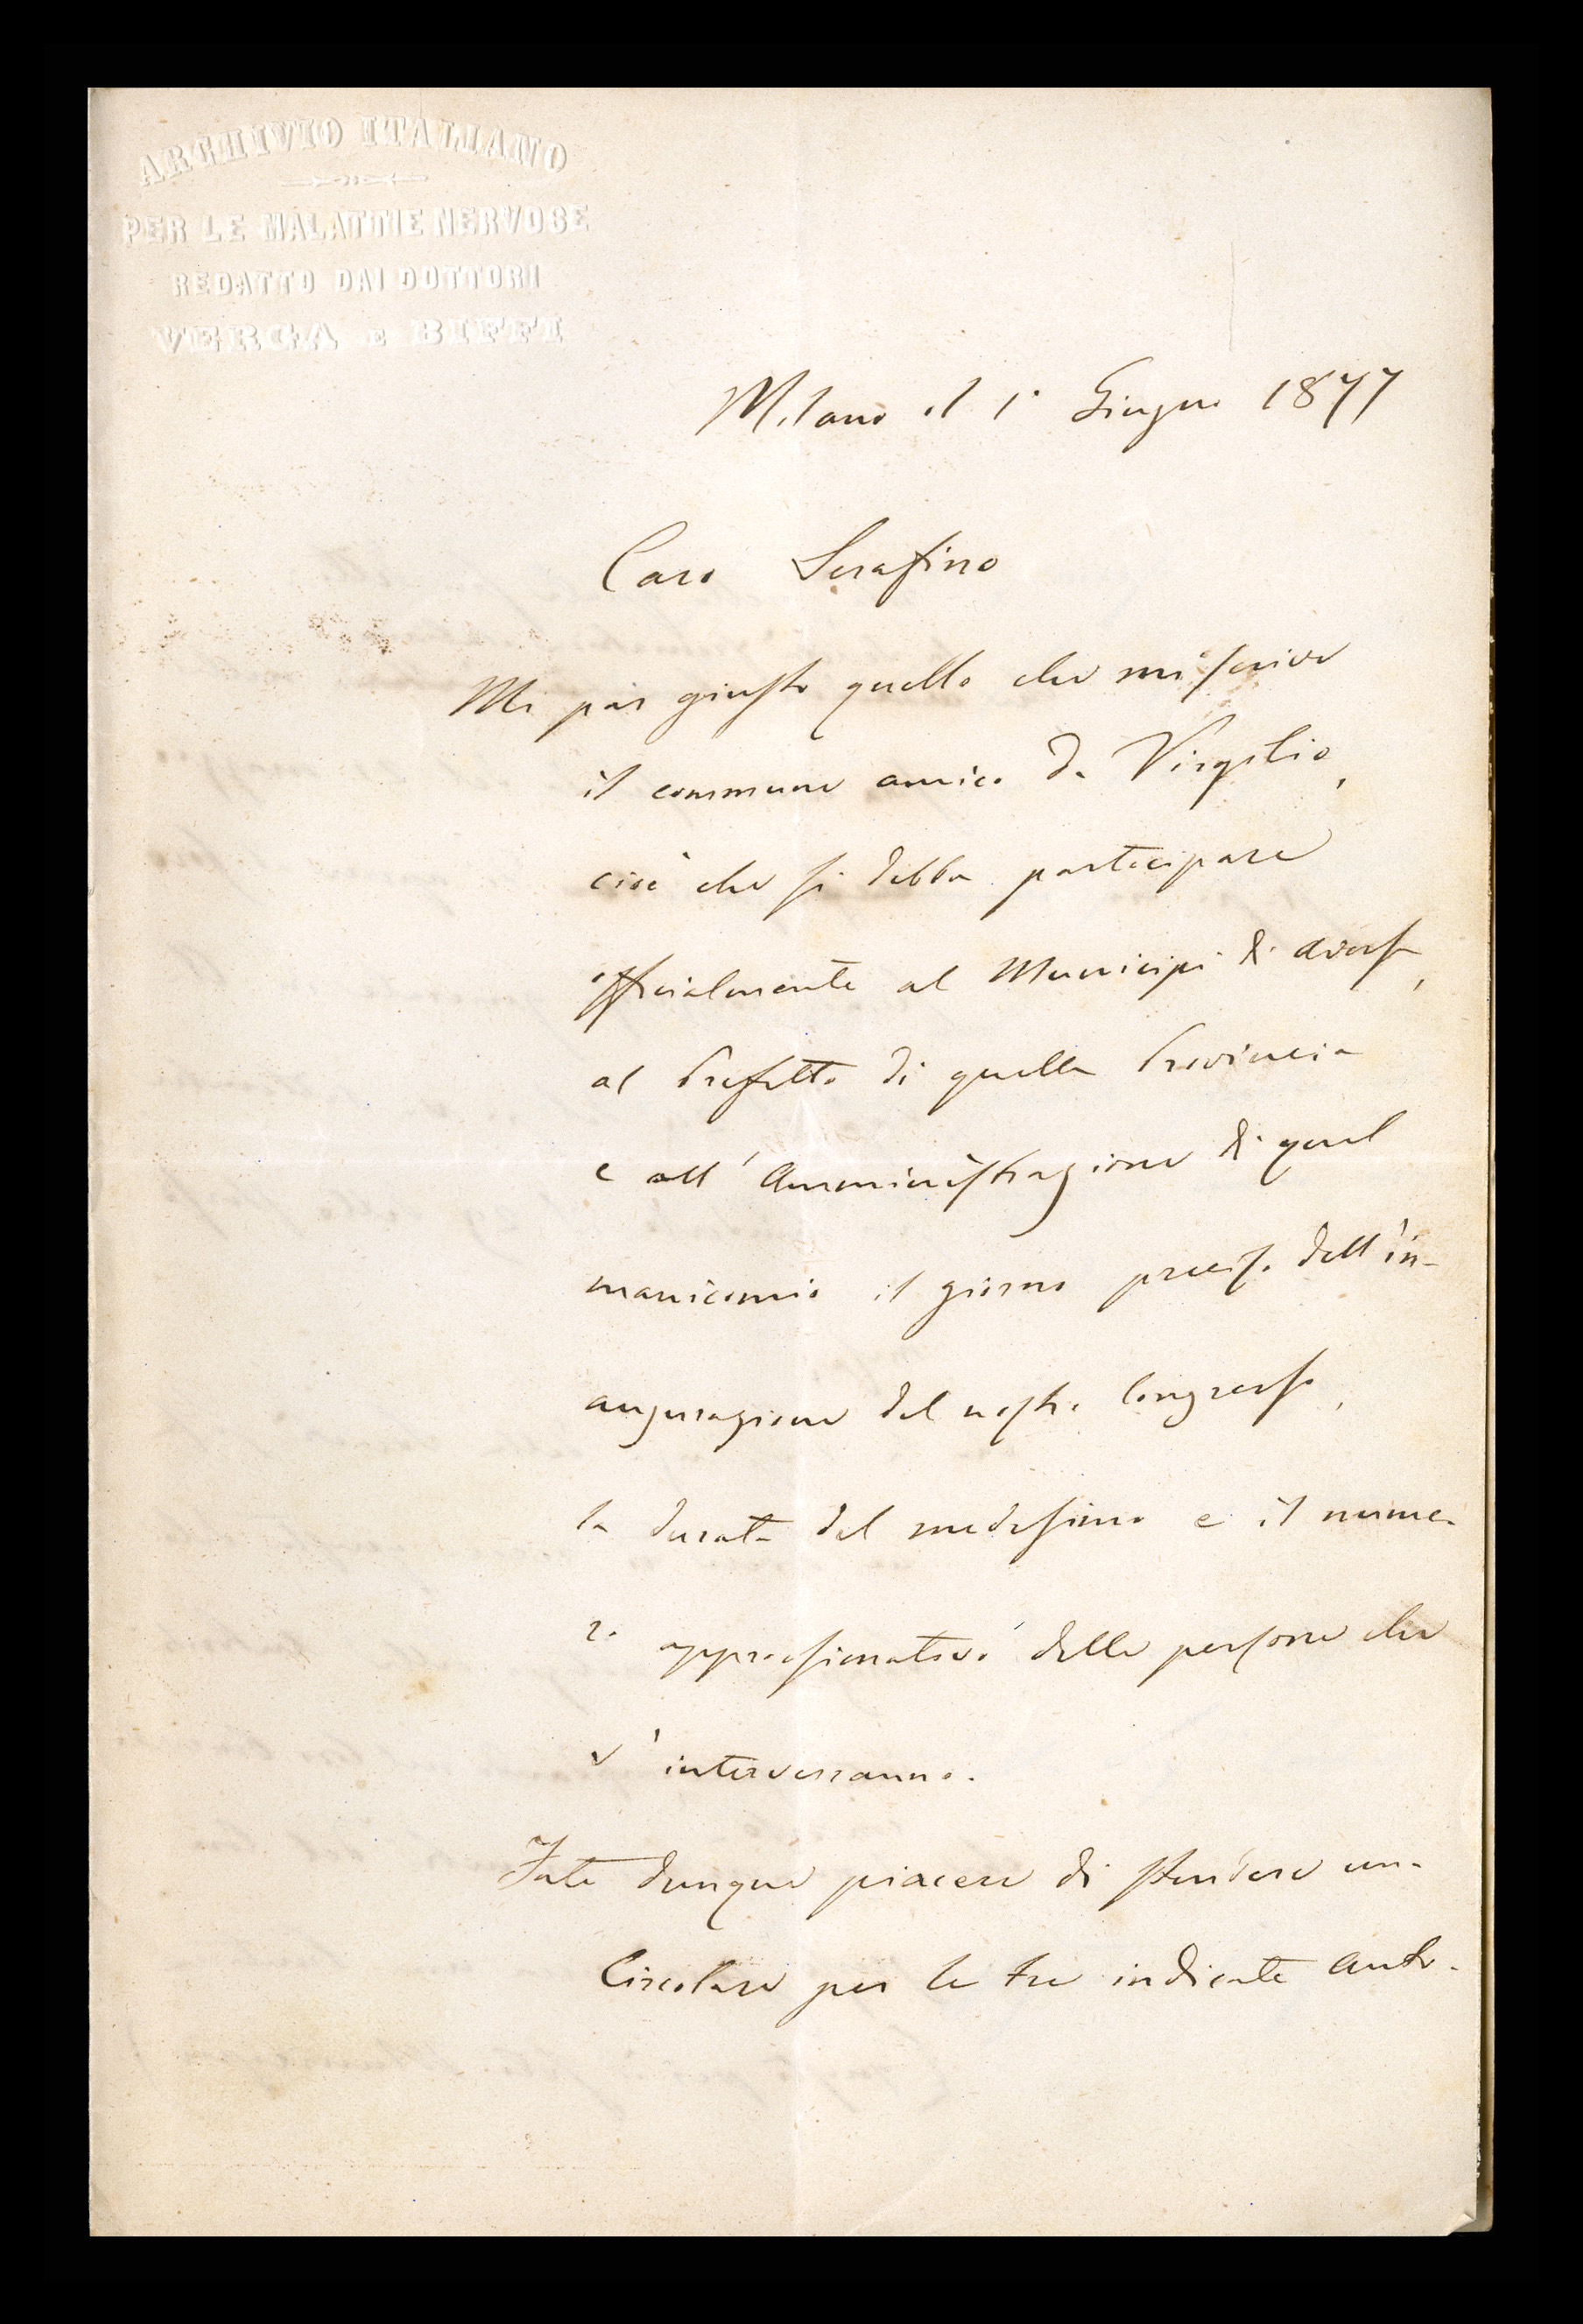 ARCHIVIO ITALIANO
PER LE MALATTIE NERVOSE
REDATTO DAI DOTTORI
VERGA E BIFFI
Milano il 1° Giugno 1877
Caro Serafino
Mi par giusto quello che mi scrive
il commune amico Da Virgilio,
cioè che si debba partecipare
officialmente al Municipi di Aversa,
al Prefetto di quella Provincia
e all'Amministrazione di quel
manicomio il giorno preciso dell'in-
augurazione del nostro Congresso,
la durata del medesimo e il nume-
ro approssimativo delle persone che
v'interverranno.
Fate dunque piacere di stendere una
Circolare per le tre indicate Auto-